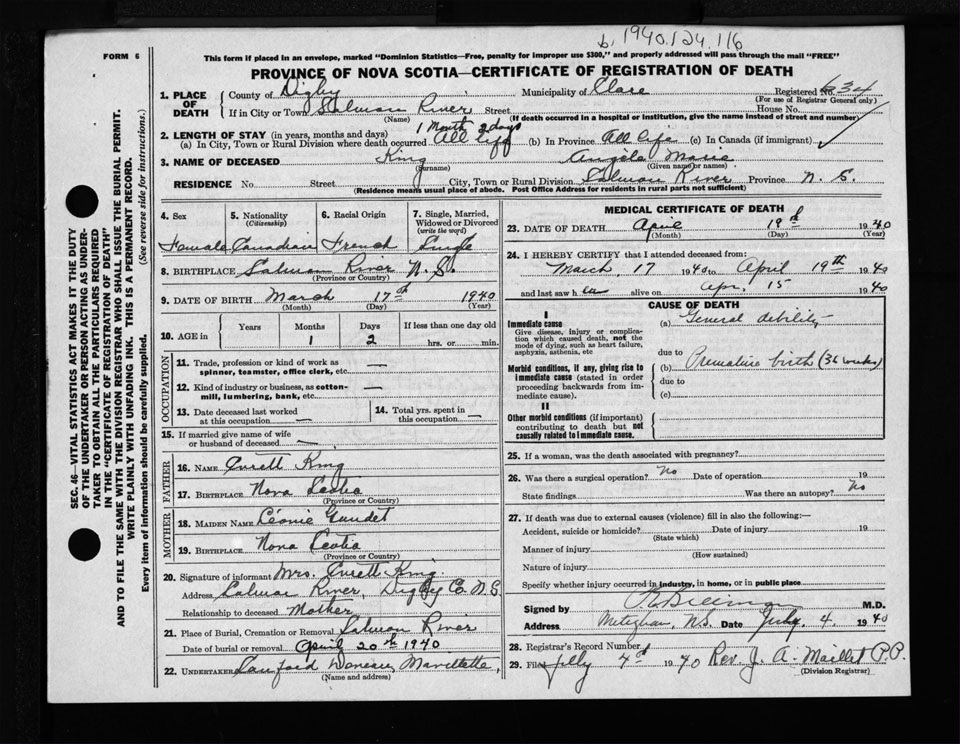 b. 1940.124.116
FORM 6
This form if placed in an envelope, marked "Dominion Statistics—Free, penalty for improper use $300," and properly addressed will pass through the mail "FREE"
PROVINCE OF NOVA SCOTIA—CERTIFICATE OF REGISTRATION OF DEATH
SEC. 46—VITAL STATISTICS ACT MAKES IT THE DUTY
OF THE UNDERTAKER OR PERSON ACTING AS UNDER-
TAKER TO OBTAIN ALL THE PARTICULARS REQUIRED
IN THE "CERTIFICATE OF REGISTRATION OF DEATH"
AND TO FILE THE SAME WITH THE DIVISION REGISTRAR WHO SHALL ISSUE THE BURIAL PERMIT.
WRITE PLAINLY WITH UNFADING INK. THIS IS A PERMANENT RECORD.
Every item of information should be carefully supplied. (See reverse side for instructions.)
1. PLACE OF DEATH
County of Digby Municipality of Clare Registered No. 634
(For use of Registrar General only)
If in City or Town Salmon River Street House No.
(Name) (If death occurred in a hospital or institution, give the name instead of street and number)
2. LENGTH OF STAY (in years, months and days) 1 Month 2 days
(a) In City, Town or Rural Division where death occurred All life (b) In Province All life (c) In Canada (if immigrant)
3. NAME OF DECEASED King Angèle Marie
(Surname) (Given name or names)
RESIDENCE No. Street City, Town or Rural Division Salmon River Province N. S.
(Residence means usual place of abode. Post Office Address for residents in rural parts not sufficient)
4. Sex
Female
5. Nationality
(Citizenship)
Canadian
6. Racial Origin
French
7. Single, Married,
Widowed or Divorced
(write the word)
Single
8. BIRTHPLACE Salmon River N. S.
(Province or Country)
9. DATE OF BIRTH March 17th 1940
(Month) (Day) (Year)
10. AGE in Years Months Days If less than one day old
1 2 hrs. or min.
OCCUPATION
11. Trade, profession or kind of work as
spinner, teamster, office clerk, etc. —
12. Kind of industry or business, as cotton-
mill, lumbering, bank, etc. —
13. Date deceased last worked
at this occupation —
14. Total yrs. spent in
this occupation —
15. If married give name of wife
or husband of deceased —
FATHER
16. NAME King
17. BIRTHPLACE Nova Scotia
(Province or Country)
MOTHER
18. MAIDEN NAME Léonie Gaudet
19. BIRTHPLACE Nova Scotia
(Province or Country)
20. Signature of informant Mrs. King
Address Salmon River, Digby Co. N.S.
Relationship to deceased Mother
21. Place of Burial, Cremation or Removal Salmon River
Date of burial or removal April 20th 1940
22. UNDERTAKER
(Name and address)
MEDICAL CERTIFICATE OF DEATH
23. DATE OF DEATH April 19th 1940
(Month) (Day) (Year)
24. I HEREBY CERTIFY that I attended deceased from:
March, 17 1940 to April 19th 1940
and last saw her alive on Apr. 15 1940
CAUSE OF DEATH
I
Immediate cause
Give disease, injury or complica-
tion which caused death, not the
mode of dying, such as heart failure,
asphyxia, asthenia, etc
(a) General debility
due to
Morbid conditions, if any, giving rise to
immediate cause (stated in order
proceeding backwards from im-
mediate cause).
(b) Premature birth (36 weeks)
due to
(c)
II
Other morbid conditions (if important)
contributing to death but not
causally related to immediate cause.
25. If a woman, was the death associated with pregnancy?
26. Was there a surgical operation? No Date of operation 19
State findings Was there an autopsy? No
27. If death was due to external causes (violence) fill in also the following:—
Accident, suicide or homicide? Date of injury 19
(State which)
Manner of injury
(How sustained)
Nature of injury
Specify whether injury occurred in industry, in home, or in public place
Signed by M.D.
Address Meteghan, N.S. Date July 4 1940
28. Registrar's Record Number
29. Filed July 4th 1940 Rev. J. A. Maillet P.P.
(Division Registrar)